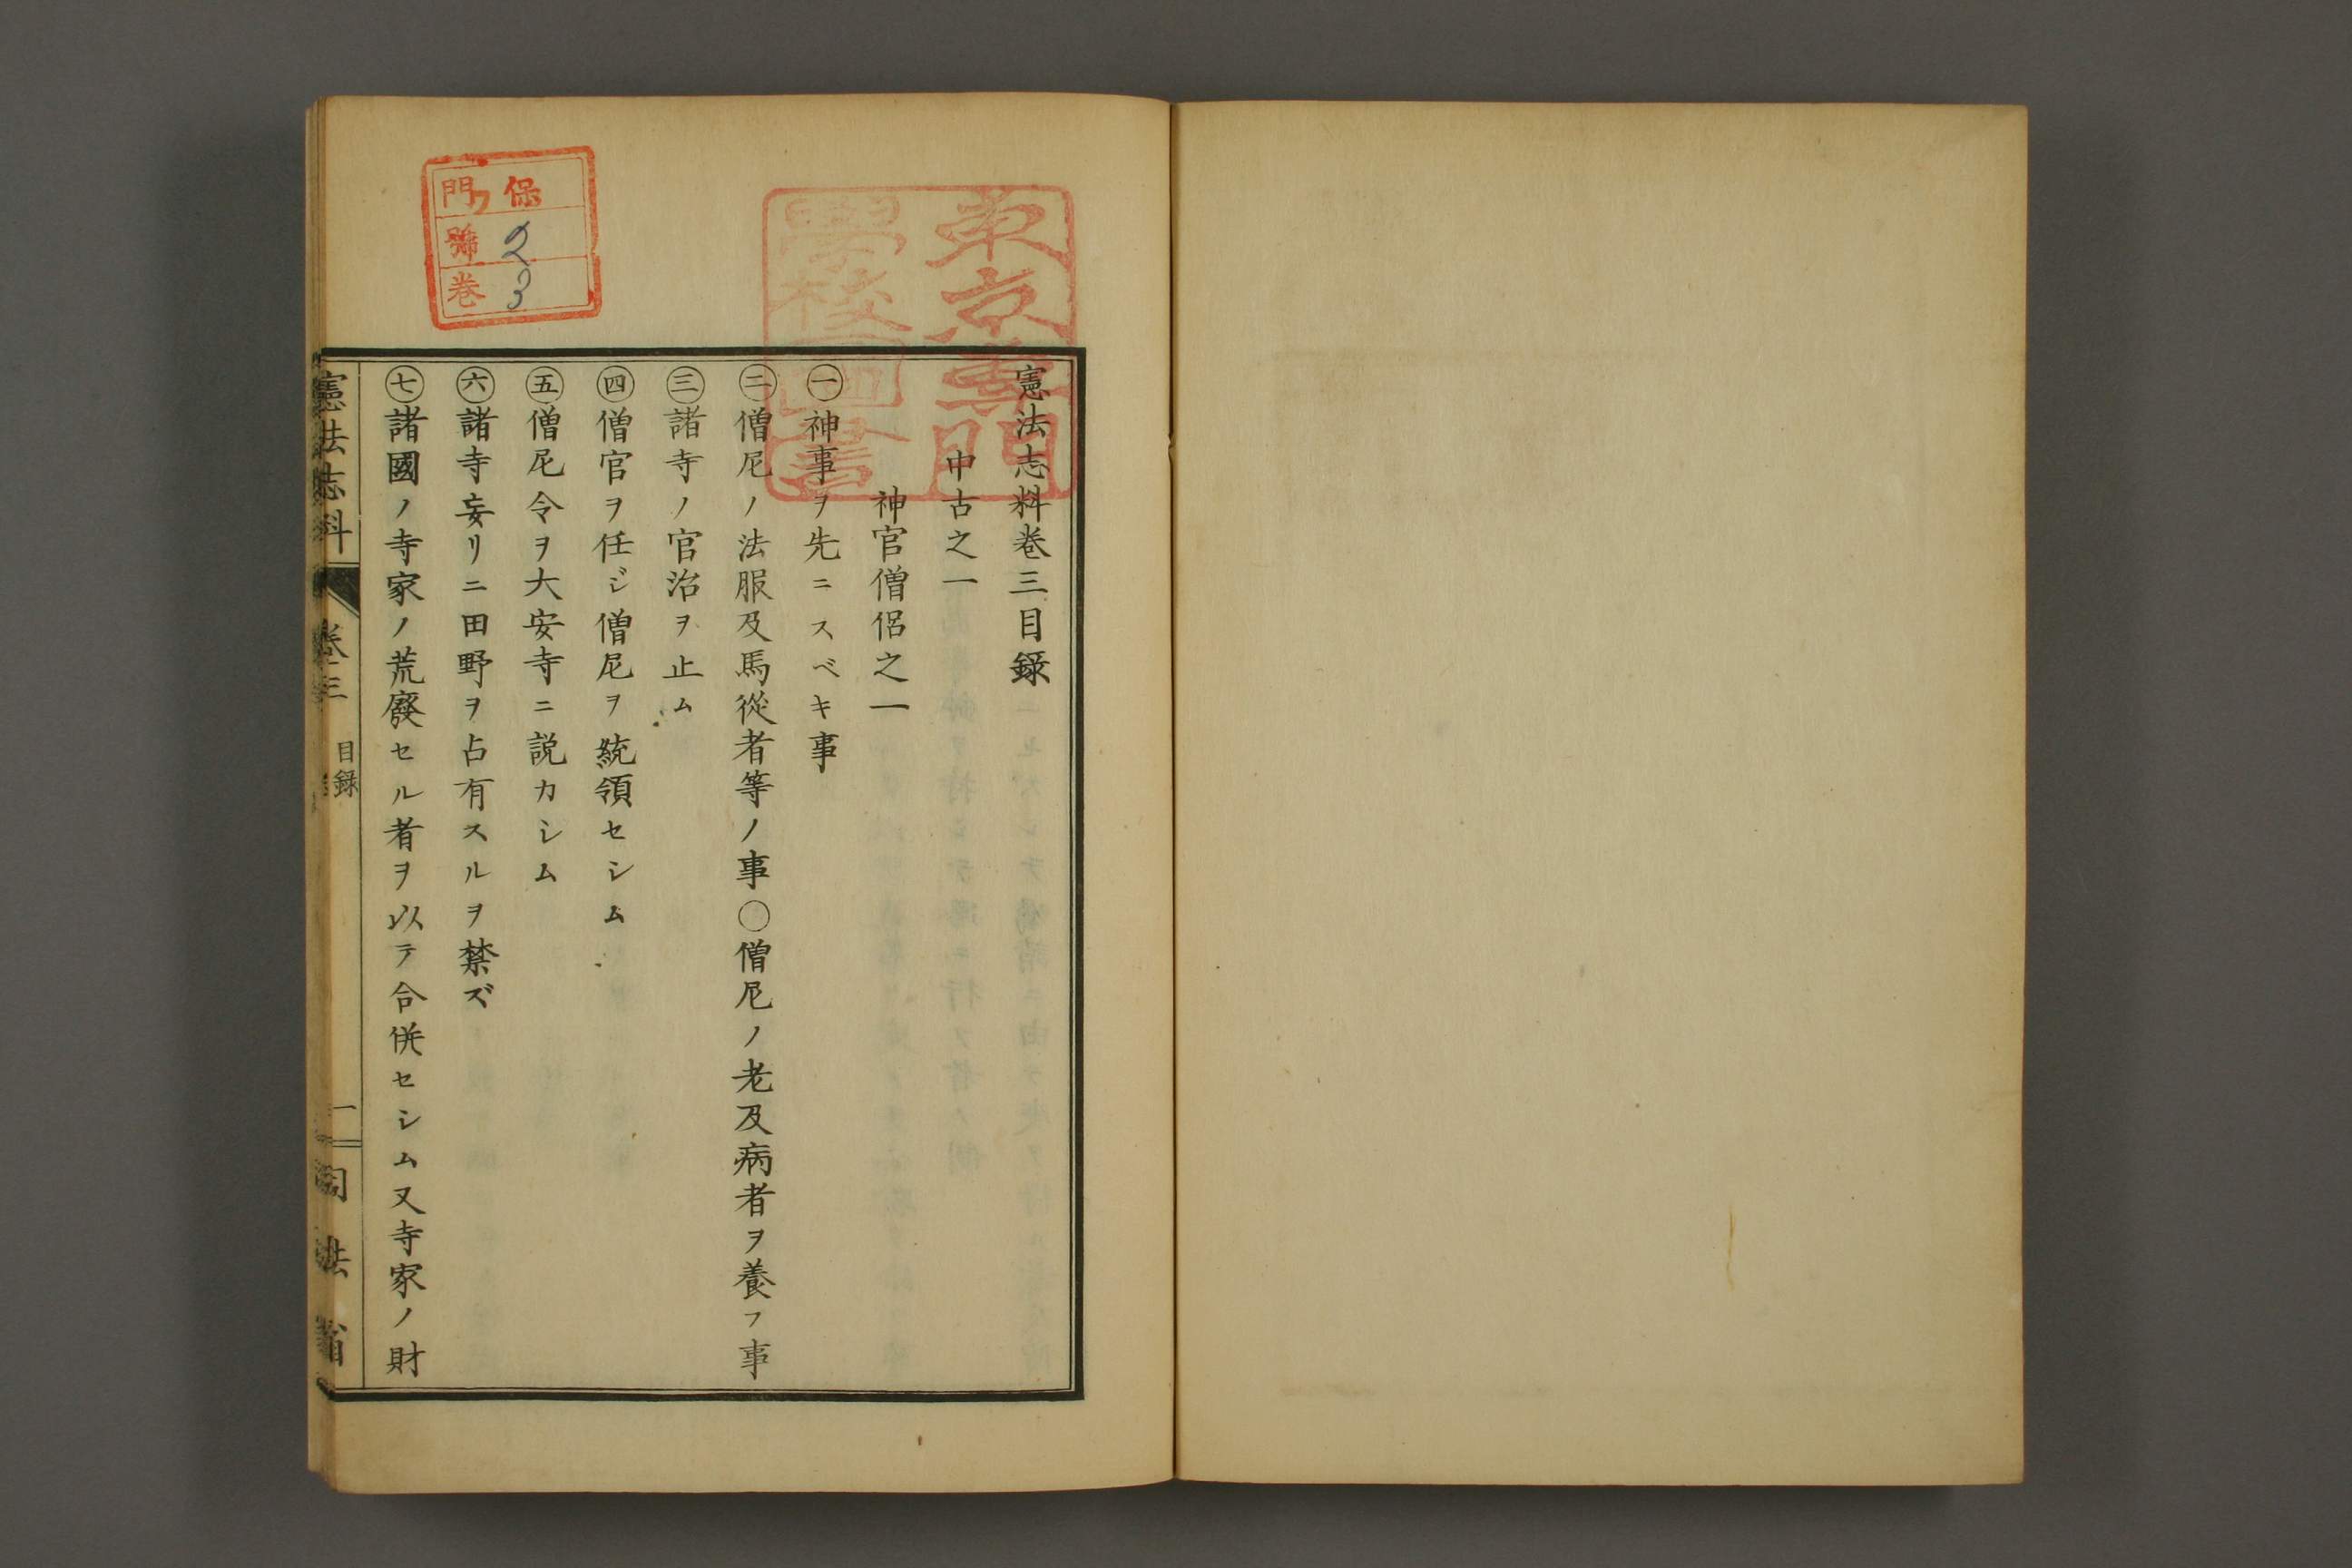 憲法志料卷三目録
中古之一
神官僧侶之一
㊀神事ヲ先ニスベキ事
㊁僧尼ノ法服及馬從者等ノ事〇僧尼ノ老及病者ヲ養フ事
㊂諸寺ノ官治ヲ止ム
㊃僧官ヲ任ジ僧尼ヲ統領セシム
㊄僧尼令ヲ大安寺ニ説カシム
㊅諸寺妄リニ田野ヲ占有スルヲ禁ズ
㊆諸國ノ寺家ノ荒廢セル者ヲ以テ合併セシム又寺家ノ財
憲法志料
卷三
目録
一
司法省
東京專門
學校圖書
保
門ワ
號2
卷3